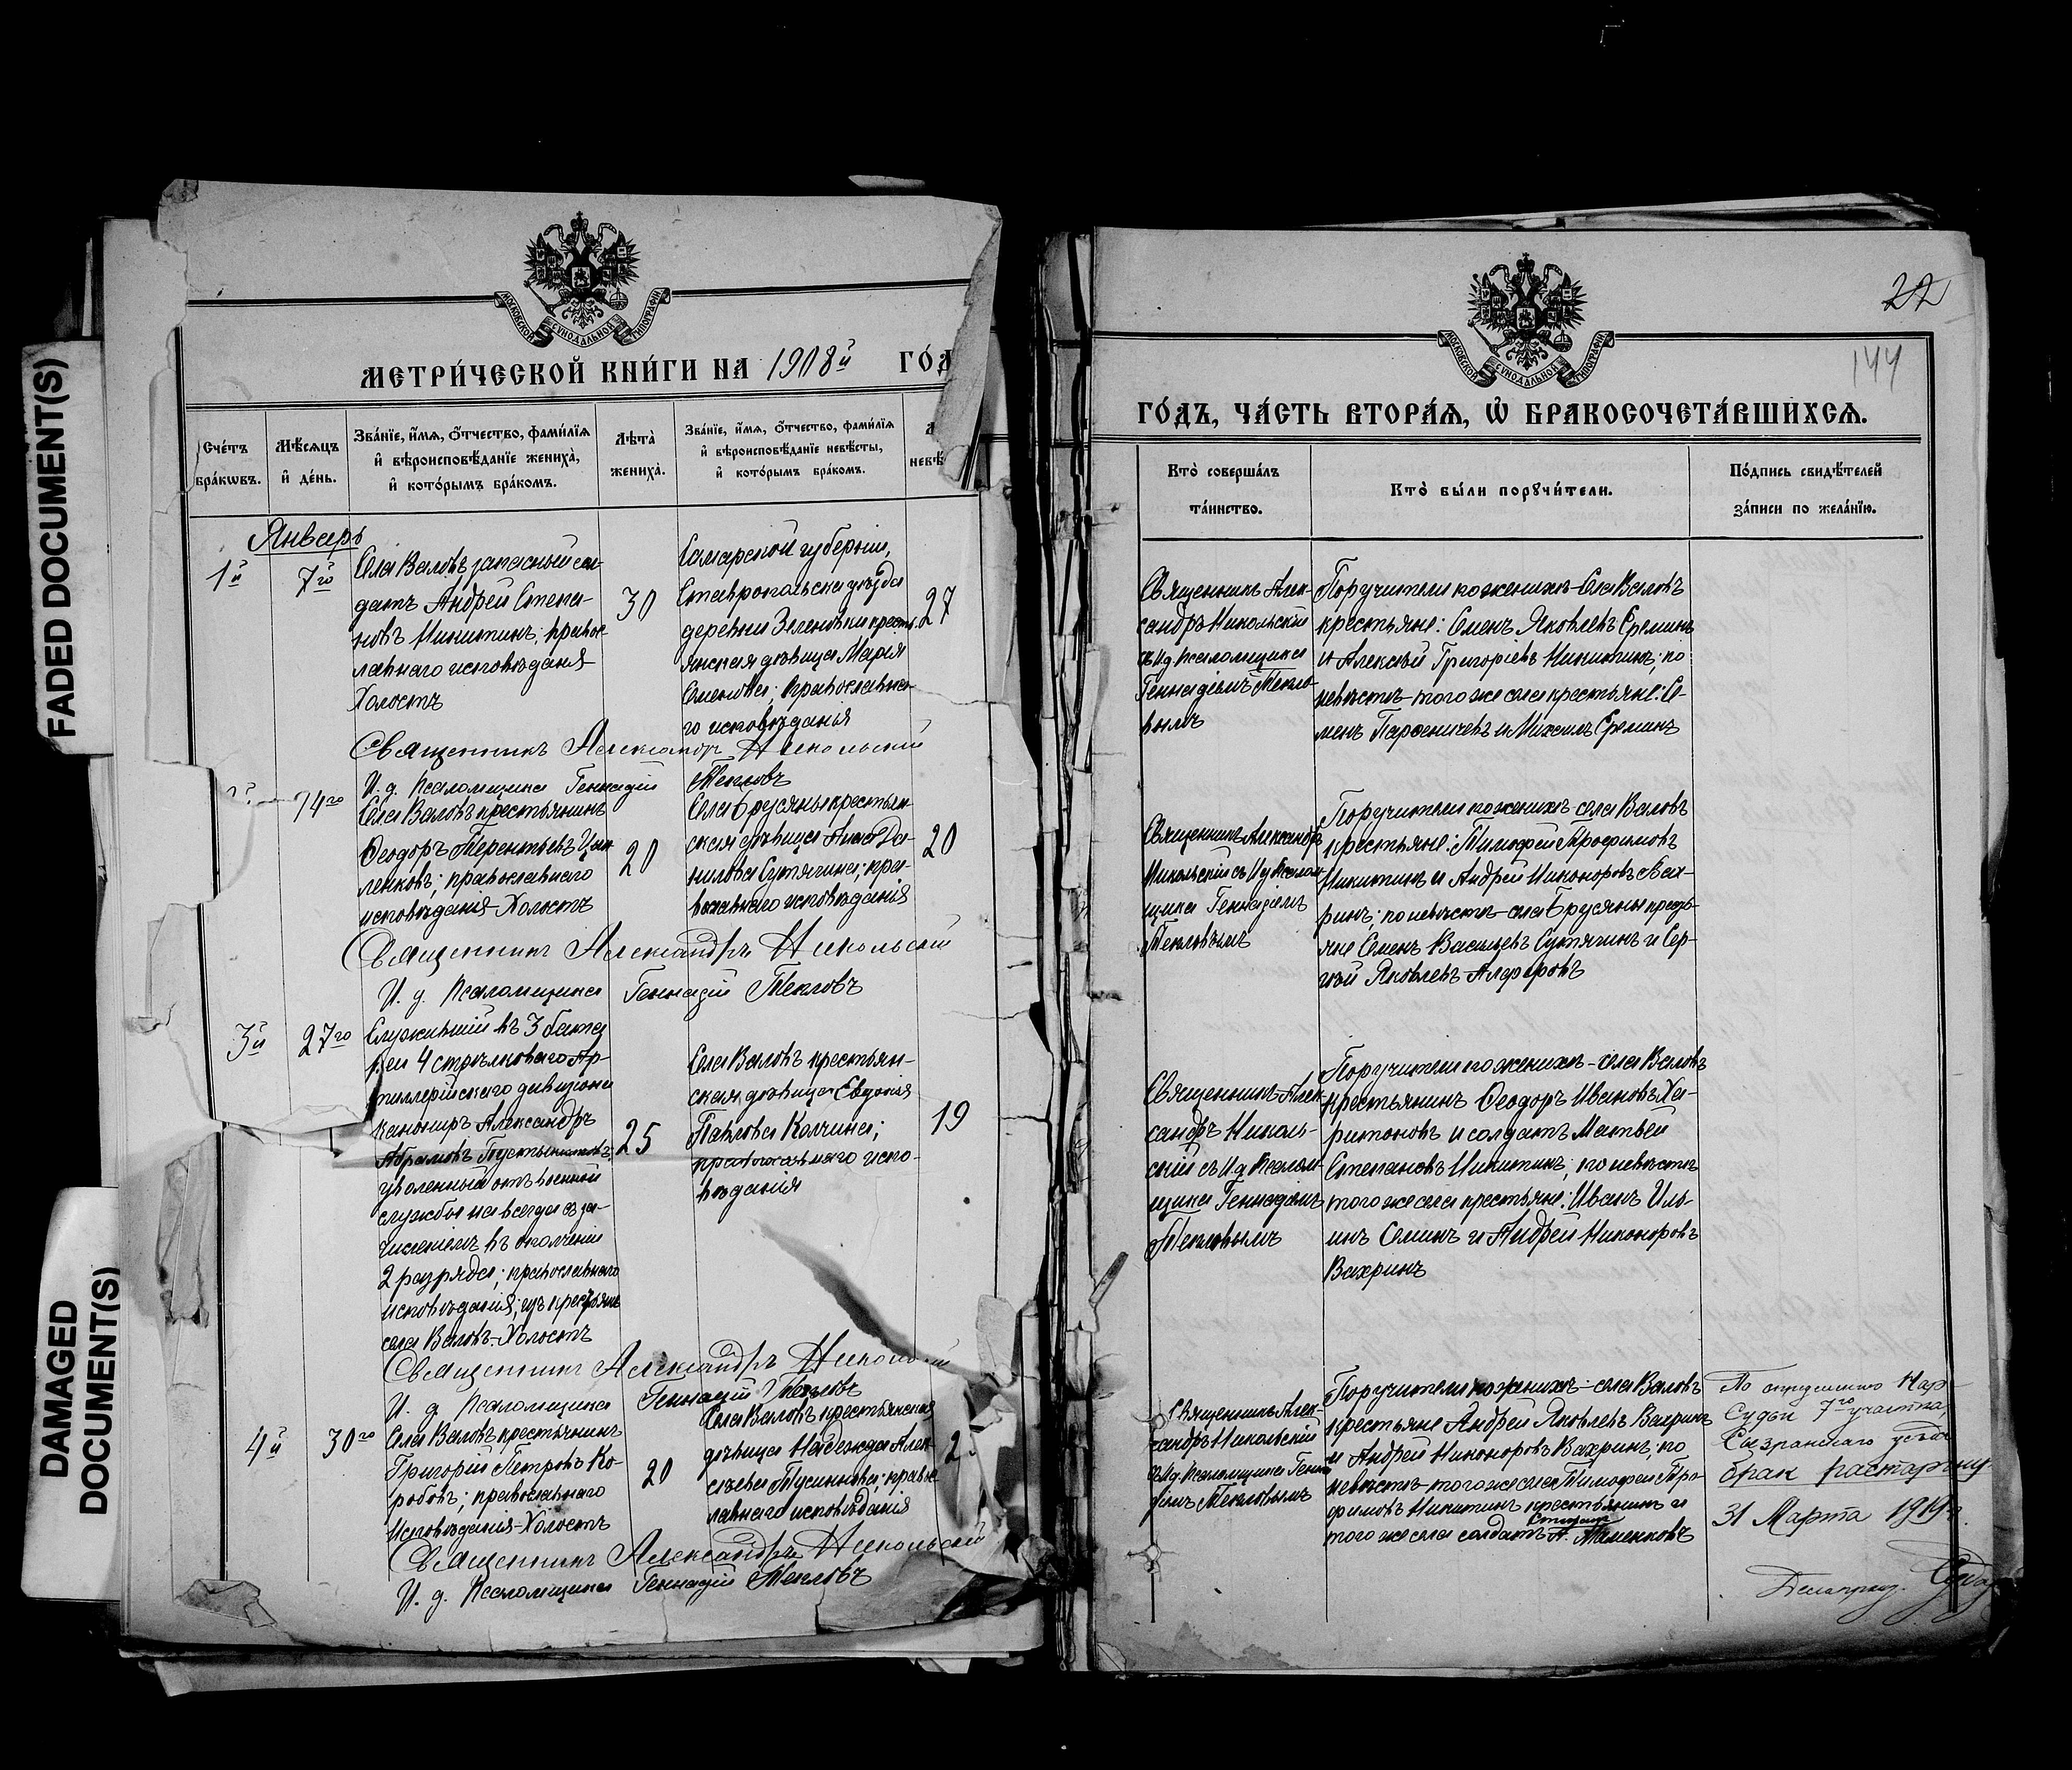 FADED DOCUMENT(S)
DAMAGED
DOCUMENT(S)
МОСКОВСКОЙ СѴНОДАЛЬНОЙ ТИПОГРАФІИ
МЕТРИ́ЧЕСКОЙ КНИ́ГИ НА 1908й ГО́Д
Сче́тъ
бра́кѡвъ.
Мѣ́сѧцъ
и҆ де́нь.
Зва́нїе, и҆́мѧ, ѻ҆́тчество, фами́лїѧ
и҆ вѣроисповѣ́данїе жениха̀,
и҆ кото́рымъ бра́комъ.
Лѣ́та̀
жениха̀.
Зва́нїе, и҆́мѧ, ѻ҆́тчество, фами́лїѧ
и҆ вѣроисповѣ́данїе невѣ́сты,
и҆ кото́рымъ бра́комъ.
невѣ́
Январь
1й
7го
Села Валовъ запасный сол-
датъ Андрей Степа-
новъ Никитинъ; правос-
лавнаго исповѣданія
Холостъ
30
Самарской губерніи,
Ставропольска уѣзда
деревни Зеленовки кресть-
янская дѣвица Марія
Семенова; православна-
го исповѣданія
27
Священникъ Александр Никольскій
И. д. Псаломщика Геннадій Текловъ
14го
Села Валовъ крестьянинъ
Ѳеодоръ Терентьевъ Цып-
ленковъ; православнаго
исповѣданія Холостъ
20
Села Брусяны крестьян-
ская дѣвица Анна Да-
нилова Сутягина; пра-
вославнаго исповѣданія
20
Священникъ Александръ Никольскій
И. д. Псаломщика Геннадій Текловъ
3й
27го
Служившій въ 3 бата
реи 4 стрѣлковаго Ар-
тиллерійскаго дивизіона
канониръ Александръ
Абрамовъ Пустынниковъ,
уволенный отъ военной
службы на всегда съ за-
численіемъ въ ополченіе
2 разряда; православнаго
исповѣданія; изъ крестьянъ
села Валовъ-Холостъ
25
Села Валовъ крестьян-
ская дѣвица Евдокія
Павлова Колчина;
православнаго испо-
вѣданія
19
Священникъ Александръ Никольскій
И. д. Псаломщика Геннадій Текловъ
4й
30го
Села Валовъ крестьянинъ
Григорій Петровъ Ко-
робовъ; православнаго
исповѣданія-Холостъ
20
Села Валовъ крестьянская
дѣвица Надежда Алек-
сѣева; правос-
лавнаго исповѣданія
2
Священникъ Александръ Никольскій
И. д. Псаломщика Геннадій Текловъ
22
144
МОСКОВСКОЙ СѴНОДАЛЬНОЙ ТИПОГРАФІИ
ГО́ДЪ, ЧА́СТЬ ВТОРА́Ѧ, Ѡ҆ БРАКОСОЧЕТА́ВШИХСѦ.
Кто̀ соверша́лъ
та́инство.
Кто̀ бы́ли порꙋчи́тели.
По́дпись свидѣ́телей
за́писи по жела́нїю.
Священникъ Алек-
сандръ Никольскій
съ И.д. Псаломщика
Геннадіемъ Текло-
вымъ
Поручители по женихѣ-Села Валовъ
крестьяне: Семенъ Яковлевъ Ереминъ
и Алексѣй Григоріевъ Никитинъ; по
невѣстѣ-того же села крестьяне: Се-
менъ Парѳеничевъ и Михаилъ Ереминъ
Священникъ Александръ
Никольскій съ И.д Псалом-
щика Геннадіемъ
Текловымъ
Поручители по женихѣ села Валовъ
крестьяне: Тимофей Трофимовъ
Никитинъ и Андрей Никоноровъ Вах-
ринъ; по невѣстѣ-села Брусяны кресть-
яне Семенъ Васильевъ Сутягинъ и Сер-
гѣй Яковлевъ Алферовъ
Священникъ Алек-
сандръ Николь-
скій съ И.д Псалом-
щика Геннадіемъ
Текловымъ
Поручители по женихѣ-села Валовъ
крестьянинъ Ѳеодоръ Ивановъ Ха-
ритоновъ и солдатъ Матвей
Степановъ Никитинъ; по невѣстѣ
того же села крестьяне: Иванъ Иль-
инъ Семинъ и Андрей Никоноровъ
Вахринъ
Священникъ Алек-
сандръ Никольскій
съ И.д. Псаломщика Генна-
діемъ Текловымъ
Поручители по женихѣ-села Валовъ
крестьяне Андрей Яковлевъ Вахринъ
и Андрей Никоноровъ Вахринъ; по
невѣстѣ-того же села Тимофей Тро-
фимовъ Никитинъ крестьянинъ и
того же села солдатъ
По определению Нар-
Судьи 7го участка,
Сызранскаго уѣзда
брак расторгну
31 Марта 1919г.